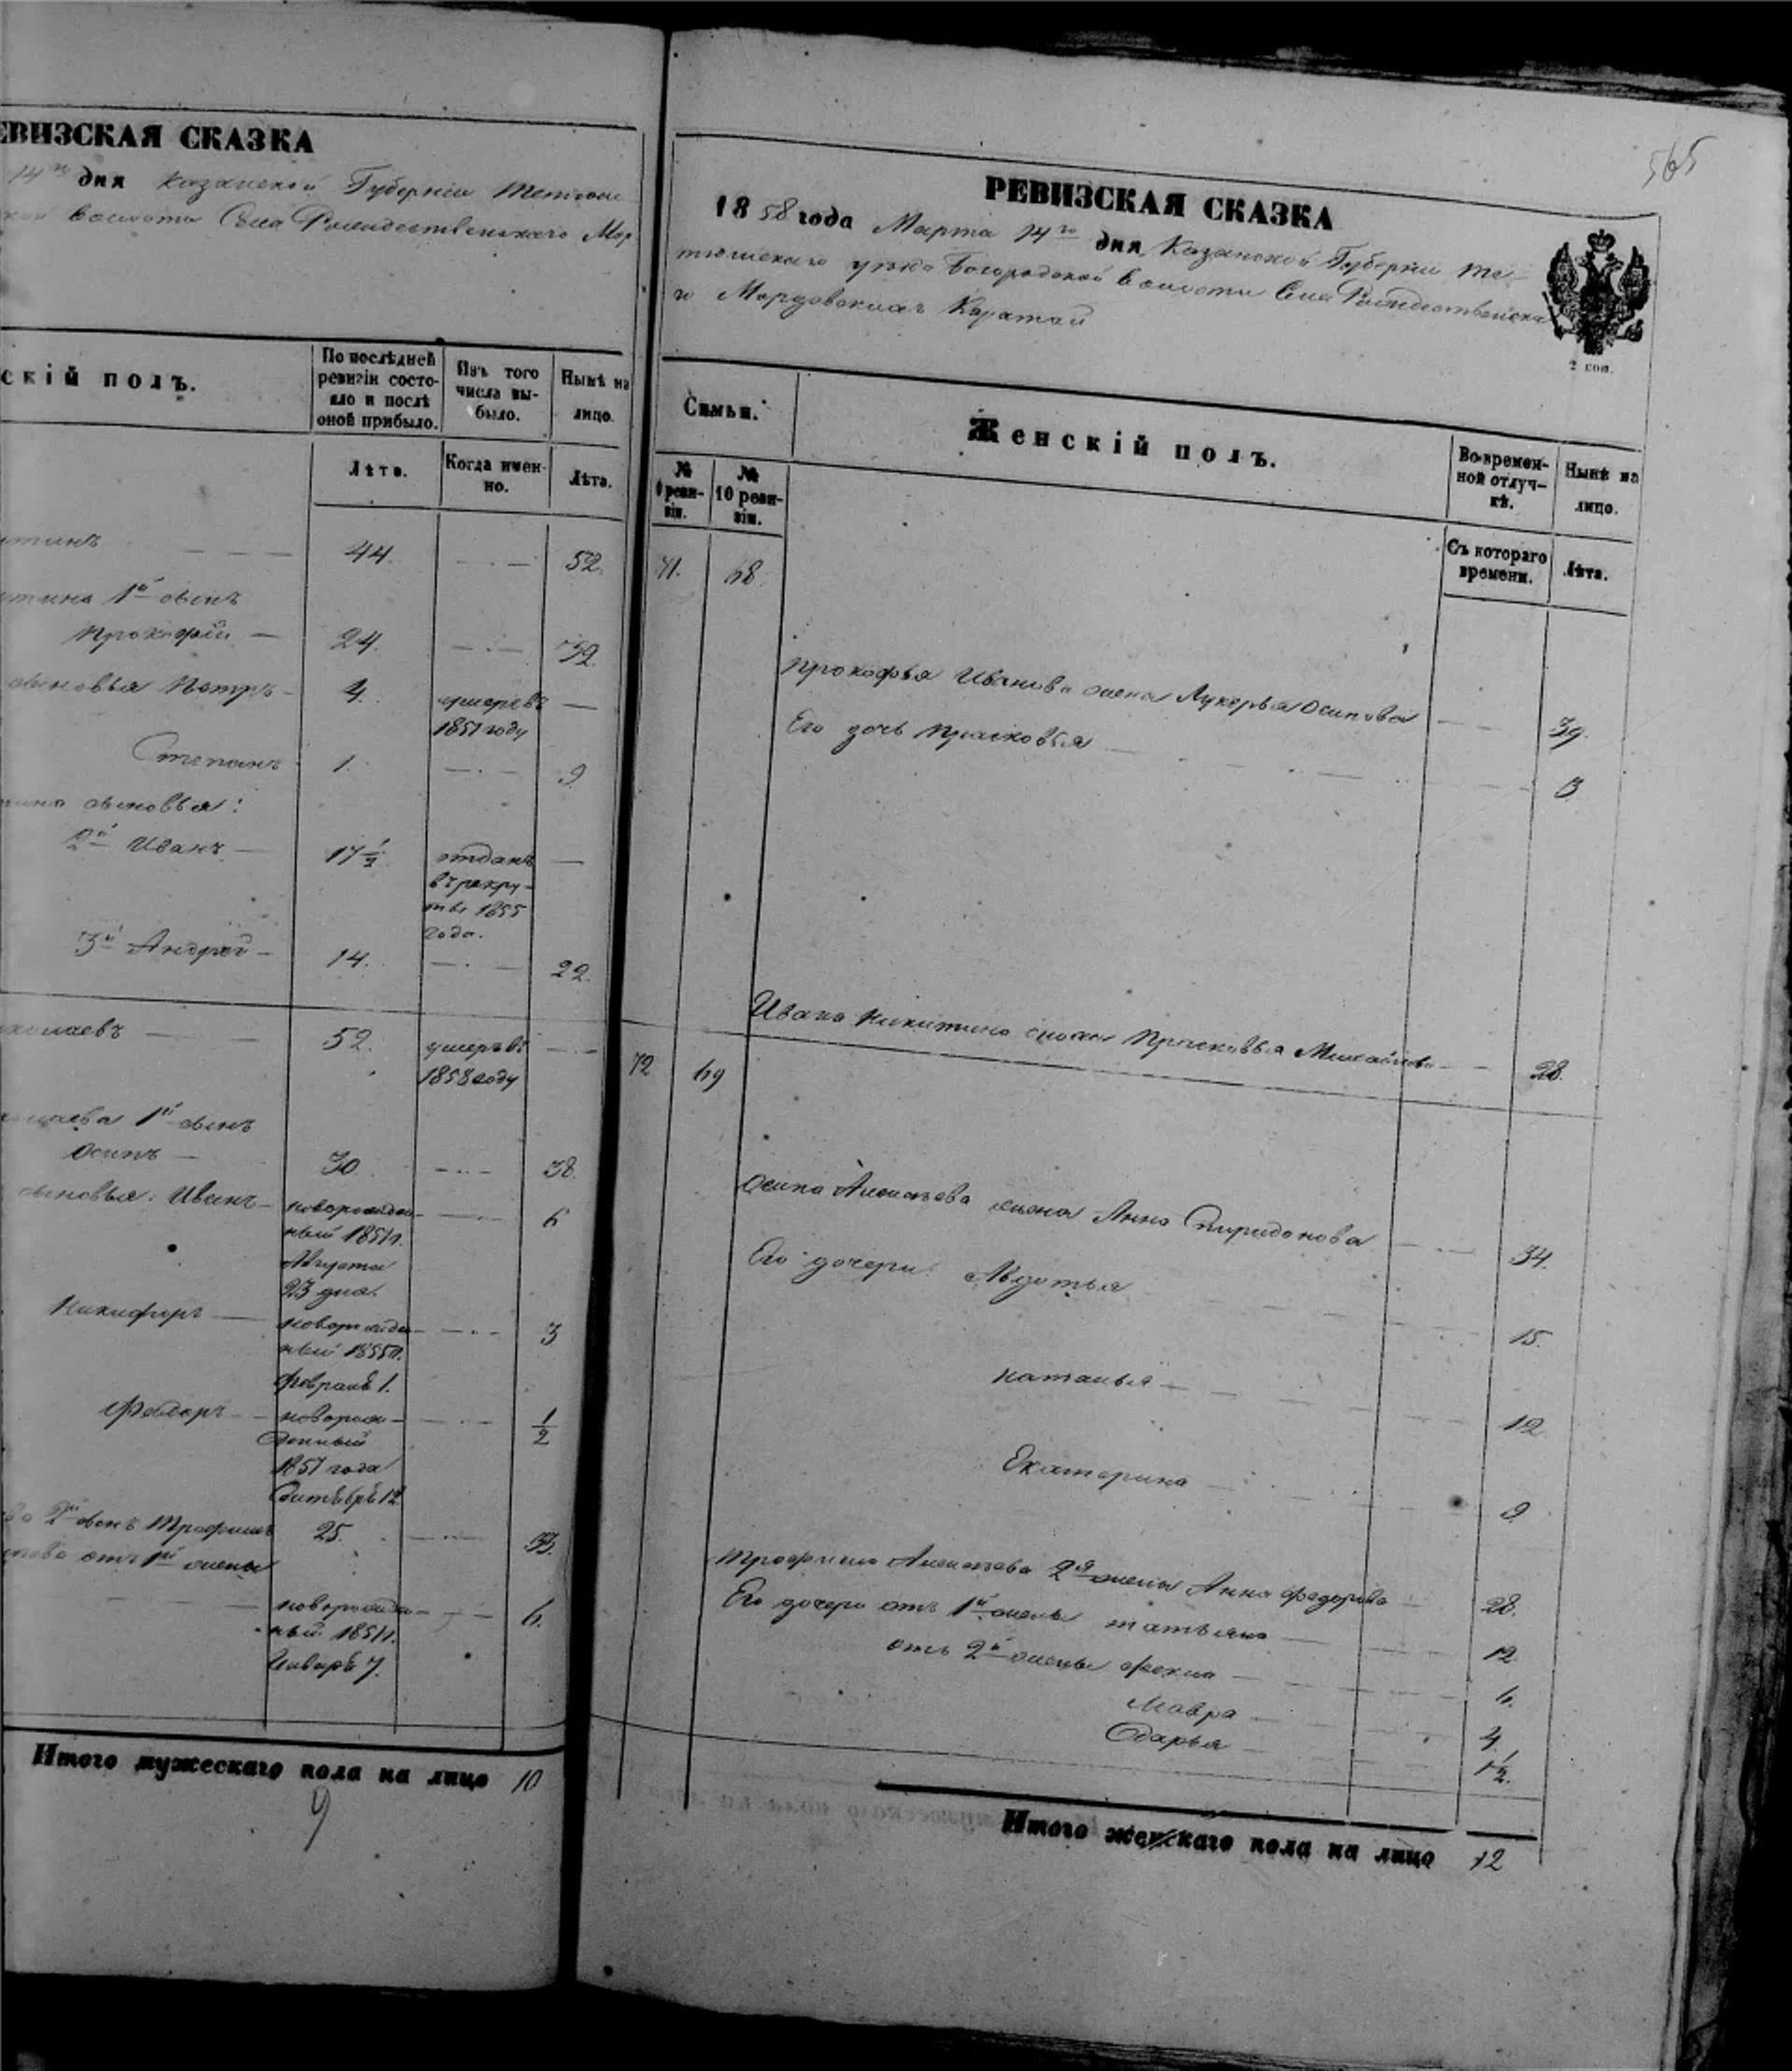 ЕВИЗСКАЯ СКАЗКА
14го дня Казанской Губерніи Тетюш
кой волости Села Рождественскаго Мор
скій полъ.
По послѣдней ревизіи состо-
яло и послѣ оной прибыло.
Изъ того числа вы-
было.
Нынѣ на лицо.
Лѣта.
Когда имен-
но.
Лѣта.
итинъ — — — 44. — · — 52.
итина 1й сынъ
Прокофій — 24. — · — 32.
сыновья Петръ — 4. умеръ въ —
1857 году
Степанъ 1. — · — 9
тина сыновья:
2й Иванъ — 17 1/2 отданъ —
въ рекру-
ты 1855
года.
3й Андрей — 14. — · — 22.
колаевъ — 52. умеръ въ — · —
1858 году
1й сынъ
Осипъ — 30. — · — 38
сыновья: Иванъ — новорожден-
ный 1851 г. — · — 6
Августа
23 дня.
Никифоръ — новорожден- — · — 3
ный 1855 г.
Февраля 1.
Федоръ — новорож- — · — 1/2
денный
1857 года
Сентября 12
ва 2й сынъ Трофимъ 25. — · — 33.
отъ 1й жены
— — — новорожден- — · — 6.
ный 1851 г.
Января 7.
Итого мужескаго пола на лицо 10
9
565
РЕВИЗСКАЯ СКАЗКА
1858 года Марта 14го дня Казанской Губерніи Те-
тюшскаго уѣзда Богородской волости Села Рождественска
го Мордовскихъ Каратай
2 коп.
Семьи.
Женскій полъ.
Во времен-
ной отлуч-
кѣ.
Нынѣ на лицо.
№ 9 реви-
зіи.
№ 10 реви-
зіи.
Съ котораго времени.
Лѣта.
71. 68.
Прокофья Иванова жена Лукерья Осипова — — 39.
Его дочь Прасковья — — — 13
Ивана Никитина жена Прасковья Михайлова — — 28.
72 69
Осипа жена Анна Спиридонова — · — 34.
Его дочери: Авдотья — — — 15.
Наталья — — — 12
Екатерина — — — 9
Трофима 2я жена Анна Федорова — 28.
Его дочери отъ 1й жены Татьяна — — 12
отъ 2й жены Фекла — — 6.
Мавра — — 4.
Дарья — — 1 1/2.
Итого женскаго пола на лицо 12